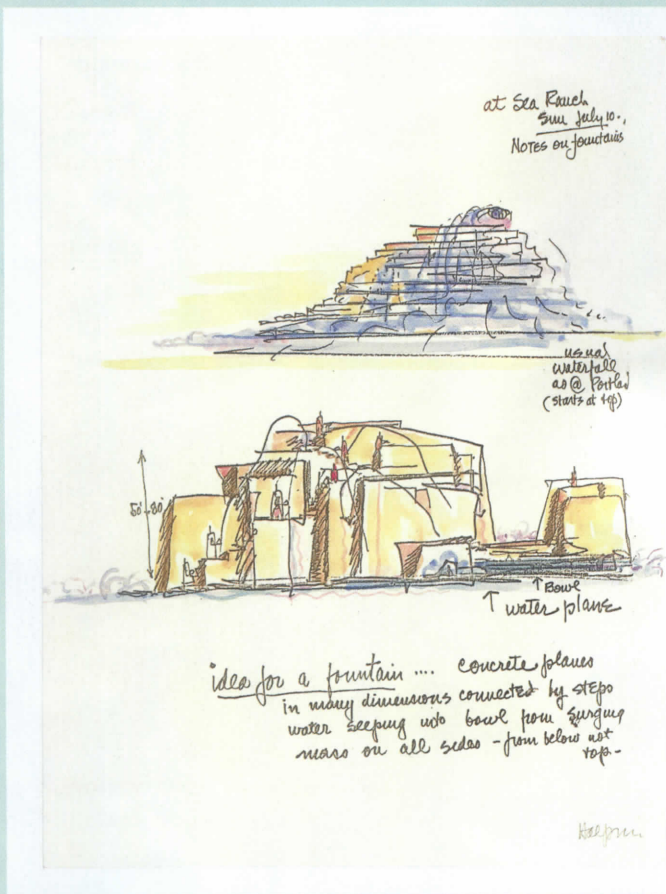 at Sea Ranch
Sun July 10.,
NOTES on fountains
usual
waterfall
as @ Portlad
(starts at top)
50'-80'
↑ Bowl
↑ water plane
idea for a fountain .... concrete planes
in many dimensions connected by steps
water seeping into bowl from surging
mass on all sides - from below not
top -
Halprin